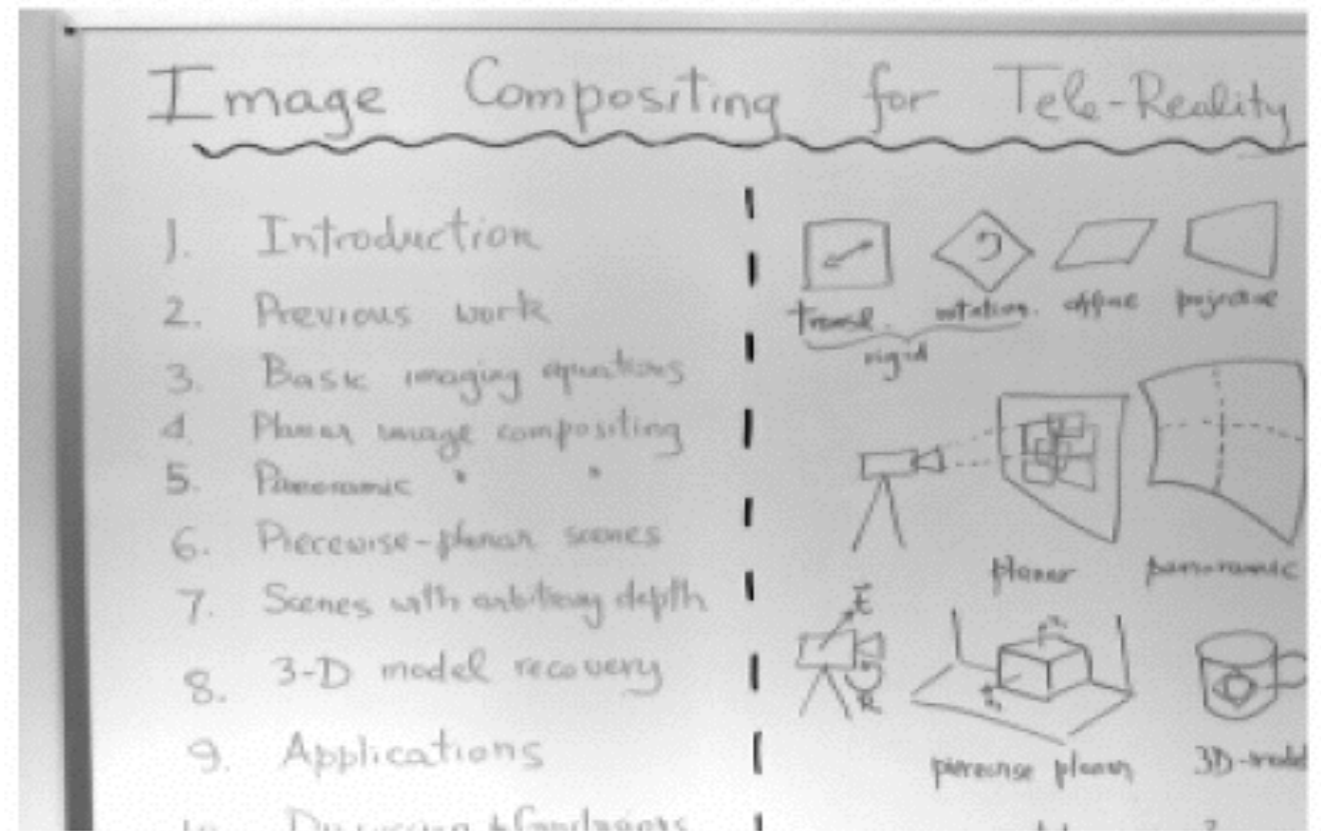 Image Compositing for Tele-Reality
1. Introduction
2. Previous work
3. Basic imaging equations
4. Planar image compositing
5. Panoramic " "
6. Piecewise-planar scenes
7. Scenes with arbitrary depth
8. 3-D model recovery
9. Applications
transl. rotation. affine projective
rigid
planar panoramic
t
R
piecewise planar 3D-model